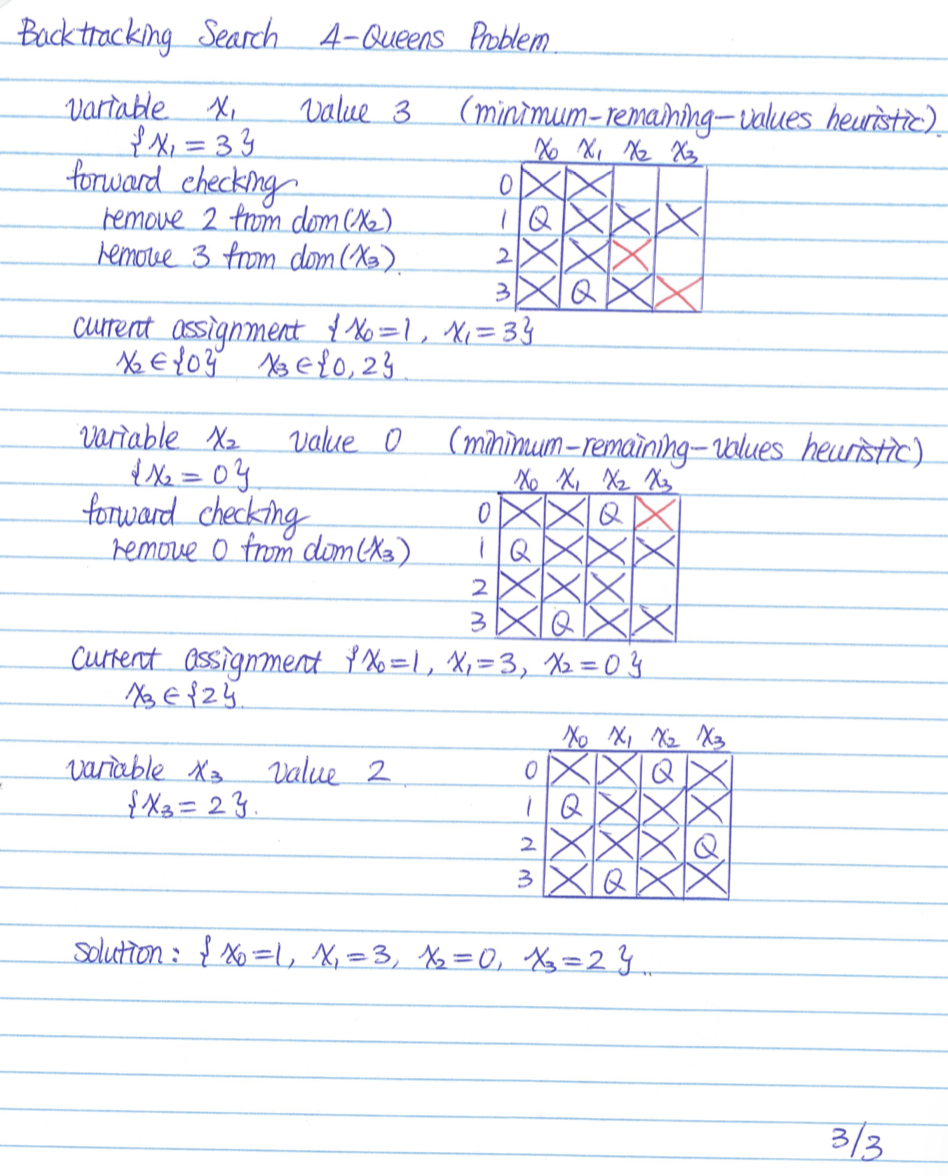 Backtracking Search 4-Queens Problem.
variable x₁ value 3 (minimum-remaining-values heuristic).
{x₁ = 3}
x₀ x₁ x₂ x₃
forward checking
0 X X
remove 2 from dom(x₂)
1 Q X X X
remove 3 from dom(x₃).
2 X X X
3 X Q X X
current assignment {x₀=1, x₁=3}
x₂∈{0} x₃∈{0,2}.
variable x₂ value 0 (minimum-remaining-values heuristic)
{x₂ = 0}
x₀ x₁ x₂ x₃
forward checking
0 X X Q X
remove 0 from dom(x₃)
1 Q X X X
2 X X X
3 X Q X X
Current assignment {x₀=1, x₁=3, x₂=0}
x₃∈{2}.
x₀ x₁ x₂ x₃
variable x₃ value 2
0 X X Q X
{x₃=2}.
1 Q X X X
2 X X X Q
3 X Q X X
solution: {x₀=1, x₁=3, x₂=0, x₃=2}..
3/3